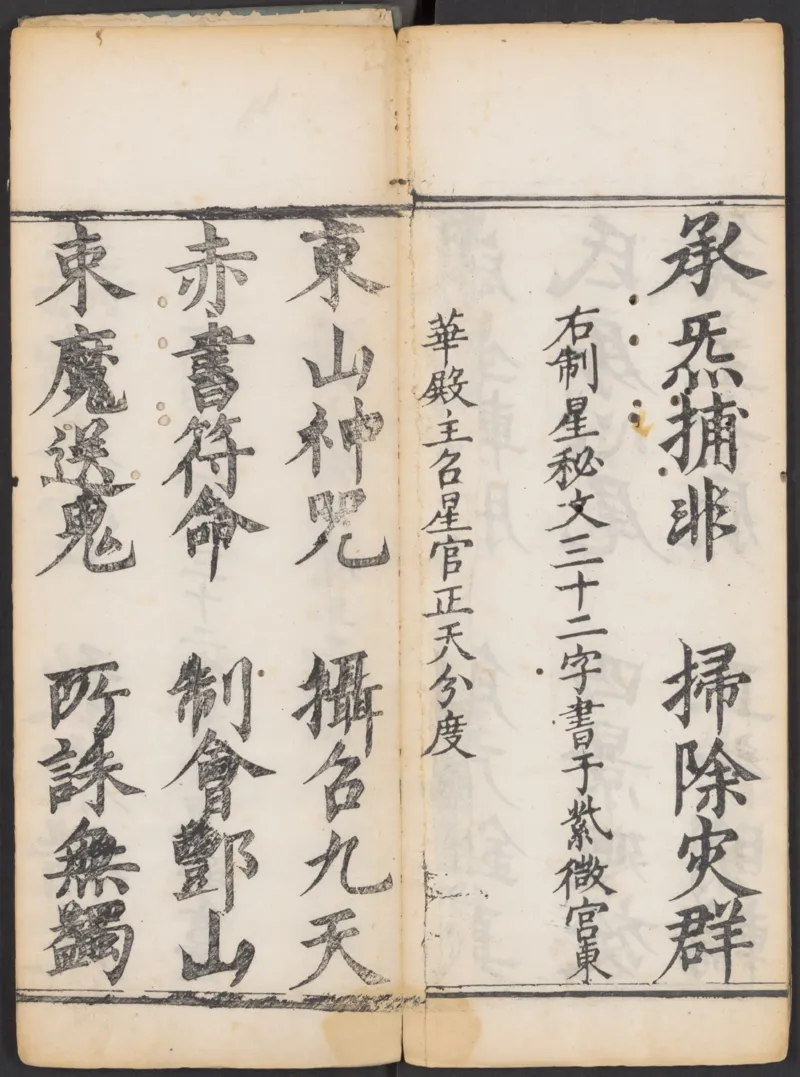 承炁捕非　掃除灾群
右制星秘文三十二字書于紫微宫東
華殿主召星官正天分度
東山神咒　攝召九天
赤書符命　制會酆山
束魔送鬼　所誅無蠲